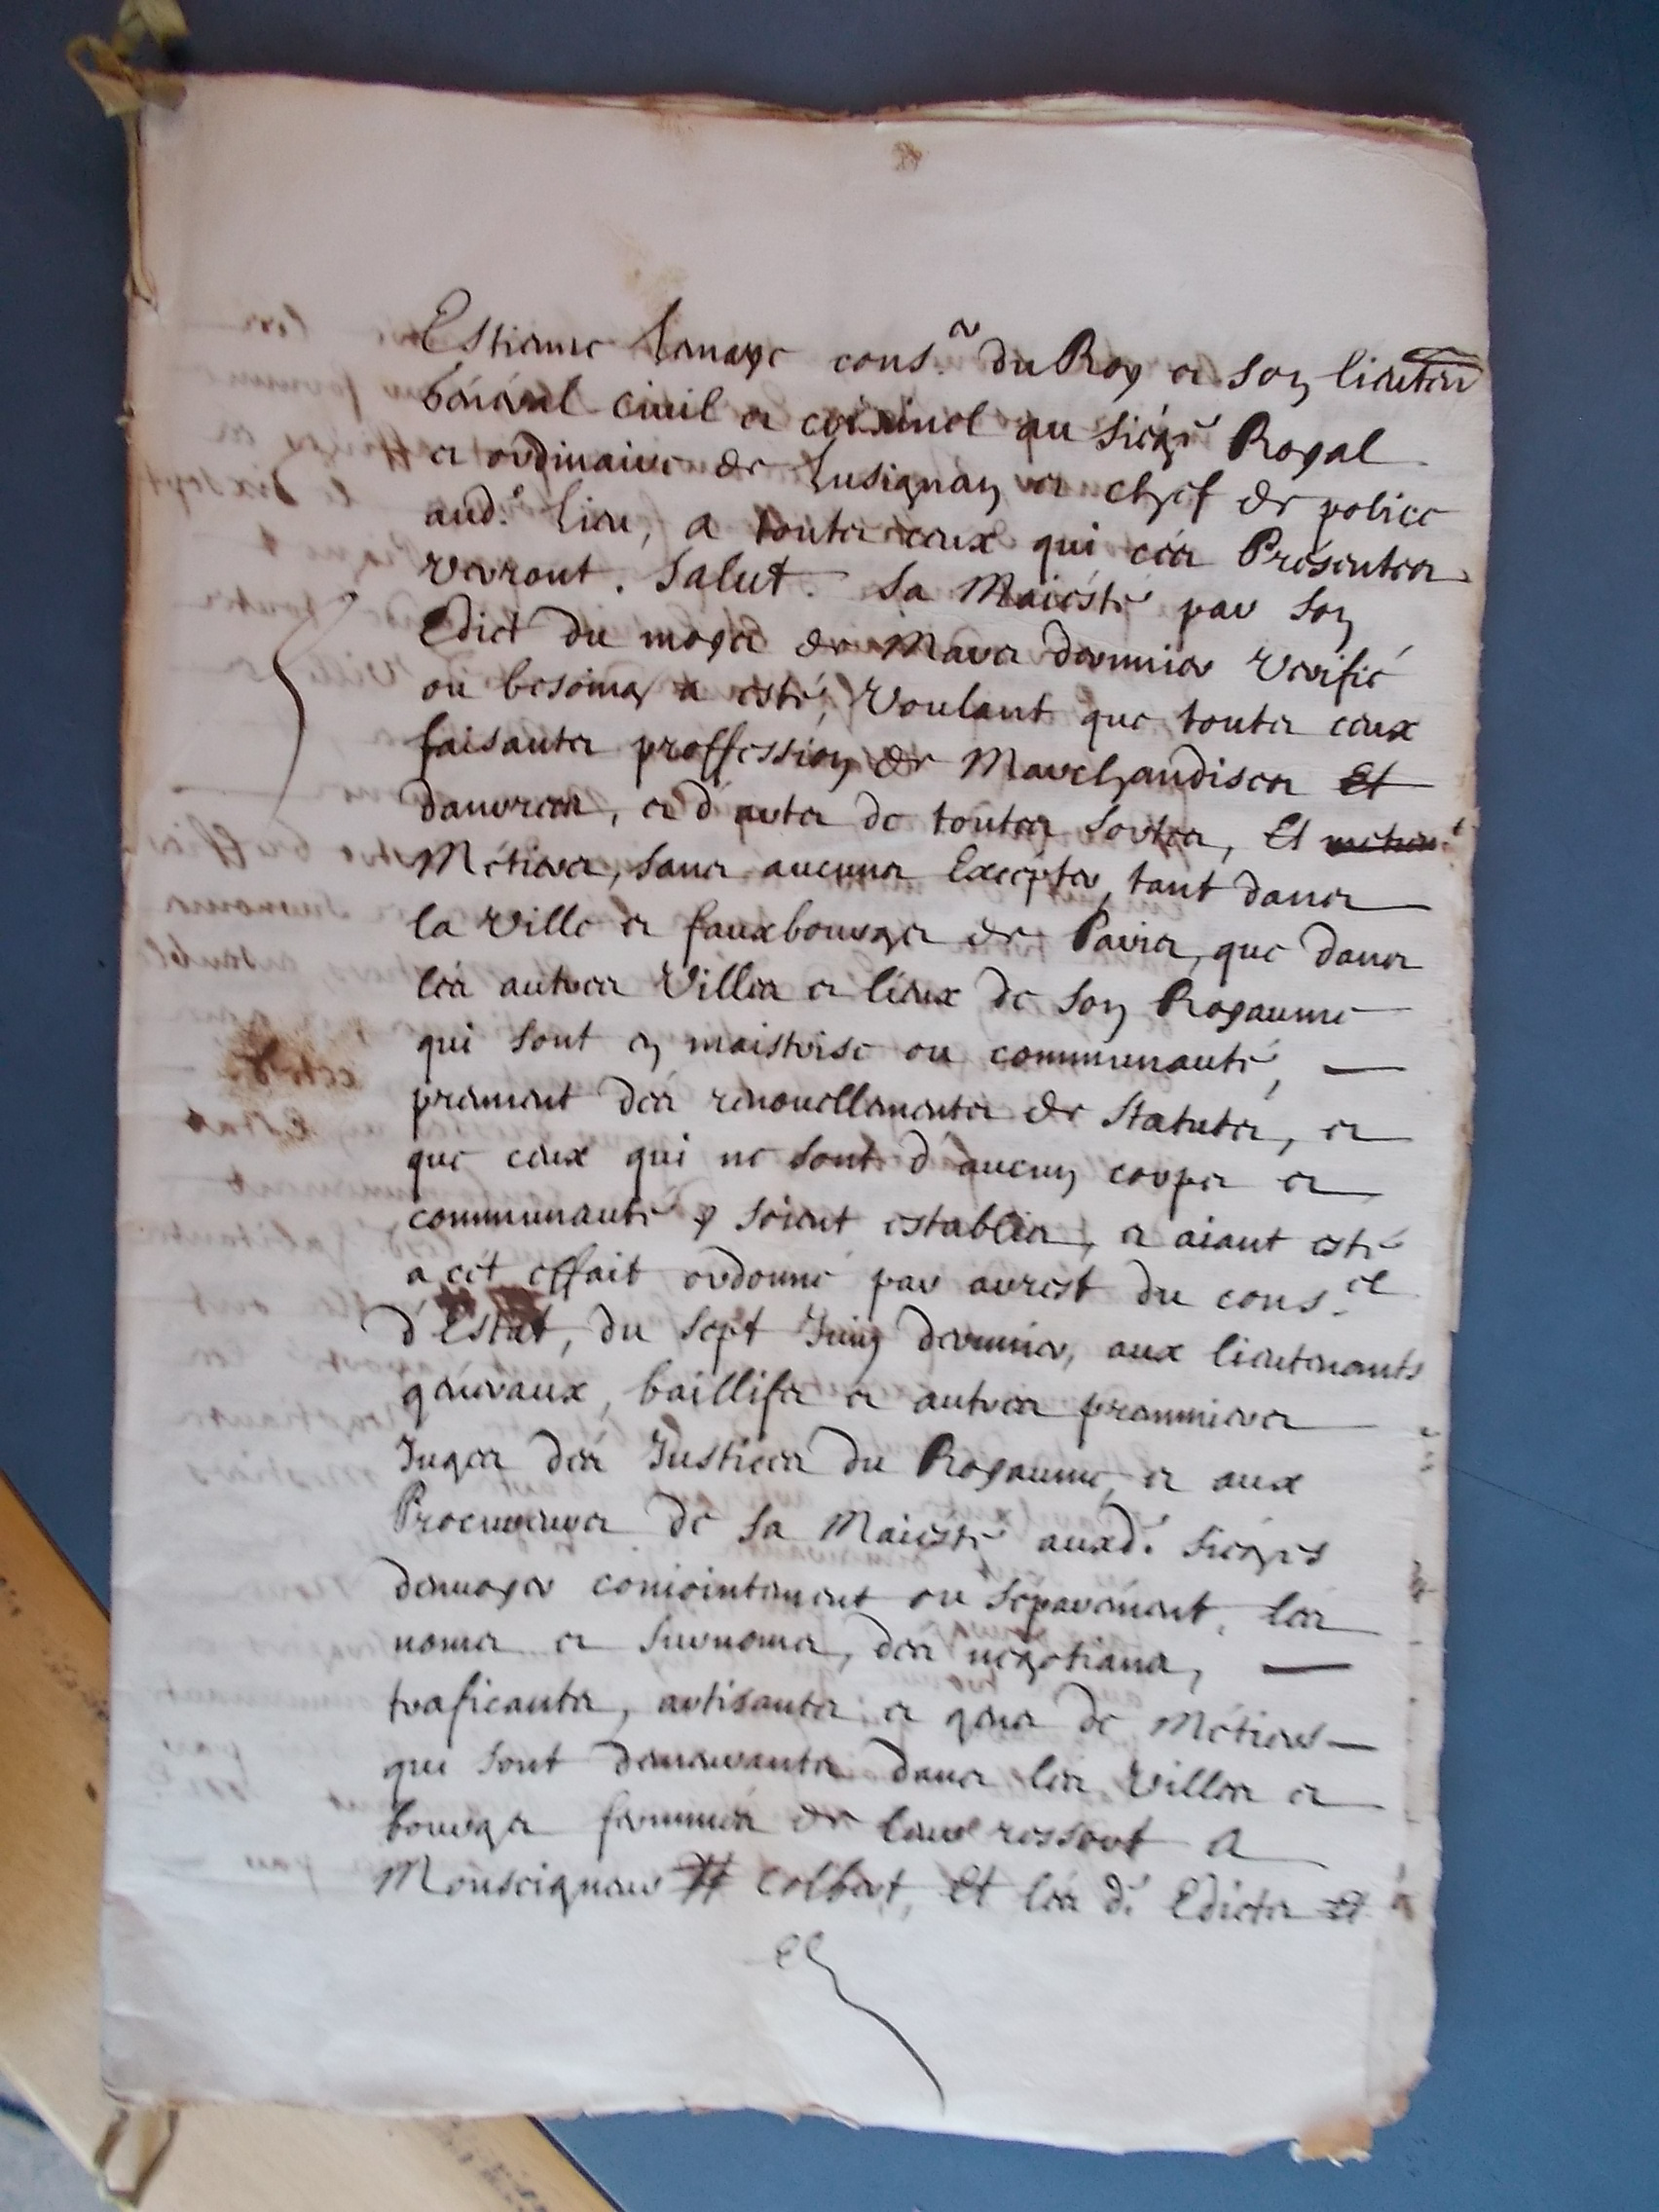 Estienne cons.er du Roy et son lieuten
général civil et criminel au siége Royal
et ordinaire de Lusignan et chef de police
aud.t lieu, a touts ceux qui cés Présentes
verront. Salut. Sa Maiesté par son
Edict du moys de Mars dernnier verifié
ou besoing a esté, Voulant que touts ceux
faisants proffession de Marchandises Et
danrées, et d'arts de toutes sortes, Et
Métiers, sans aucuns Excépter, tant dans
la Ville et fauxbourgs de Paris, que dans
lés autres Villes et lieux de son Royaume
qui sont en maistrise ou communauté, —
prennent dés renouellements de Statuts, et
que ceux qui ne sont d'aucun corps et
communauté y soient establis, et aiant esté
a cét effait ordonné par arrest du cons.el
d'Estat, du sept Juin dernnier, aux lieutenants
généraux, baillifs et autres premmiers
Juges dés Justices du Royaume, et aux
Procureurs de sa Maiesté auxd.s siéges
denuoyer conioinctement ou séparément, lés
noms et surnoms, dés négotians, —
traficants, artisants, et gens de Métiers —
qui sont demeurants dans lés Villes et
bourgs fermmés de leur ressort a
Monseigneur Colbert, Et lés d.s Edicts Et